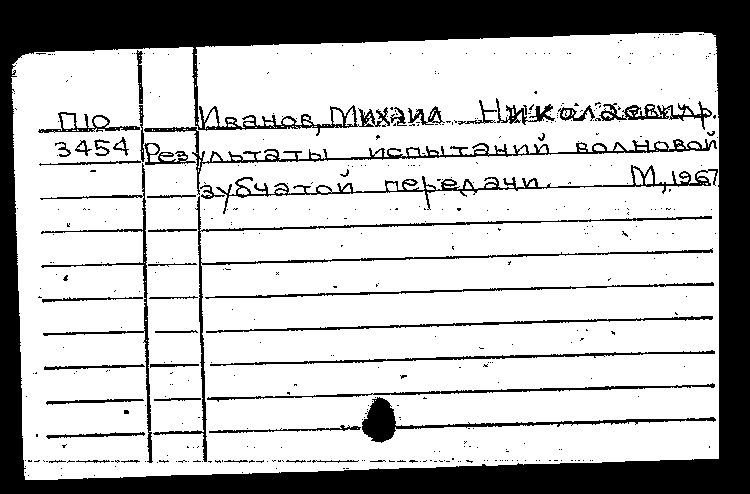 П10 Иванов, Михаил Николаевич, др.
3454 Результаты испытаний волновой
зубчатой передачи. М, 1967